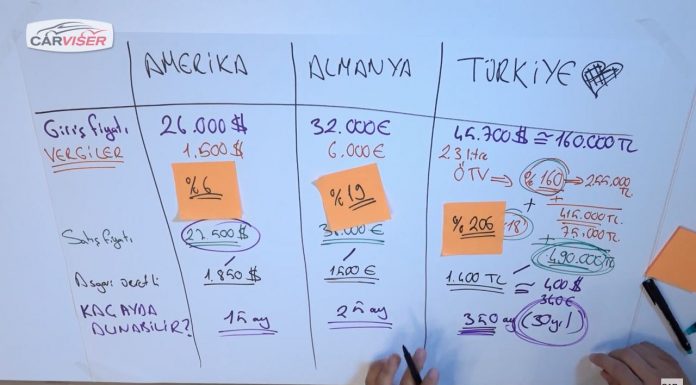 CARVISER
AMERIKA ALMANYA TÜRKİYE
Giriş fiyatı 26.000$ 32.000€ 45.700$ ≅ 160.000TL
VERGİLER 1.500$ 6.000€ 2.3 litre
ÖTV → %160 → 255.000 TL
%6 %19 %206
+ +
415.000 TL
%18 75.000 TL
+
Satış fiyatı 27.500$ 490.000TL
Asgari ücretli 1.850$ 1500€ 1.400 TL ≅ 400$
340€
KAÇ AYDA ALINABİLİR? 15 ay 25 ay 350 ay (30 yıl)